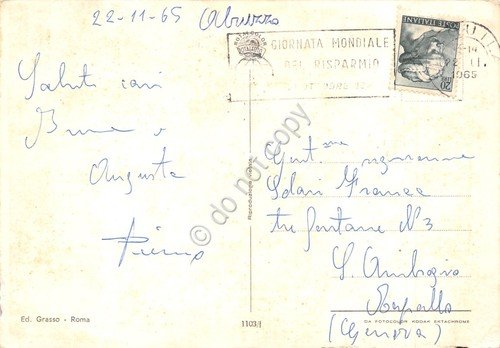 22-11-65 Abruzzo
GIORNATA MONDIALE
DEL RISPARMIO
POSTE ITALIANE
20
22.11.
1965
Saluti cari
Bruna e
Augusta
Piero
Gent.ma signorina
Franca
tre fontane N 3
S. Ambrogio
Rapallo
(Genova)
Riproduzione vietata
Ed. Grasso - Roma
1103/I
DA FOTOCOLOR KODAK EKTACHROME
do not copy